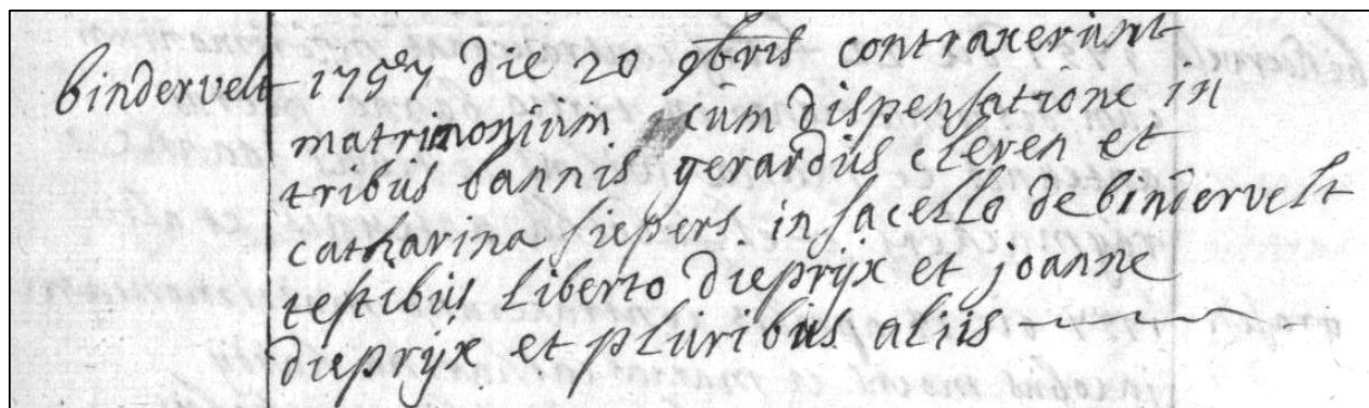 bindervelt 1757 die 20 9bris contraxerunt
matrimonium cum dispensatione in
tribus bannis gerardus cleren et
catharina siepers in sacello de bindervelt
testibus liberto dieprijx et joanne
dieprijx et pluribus aliis